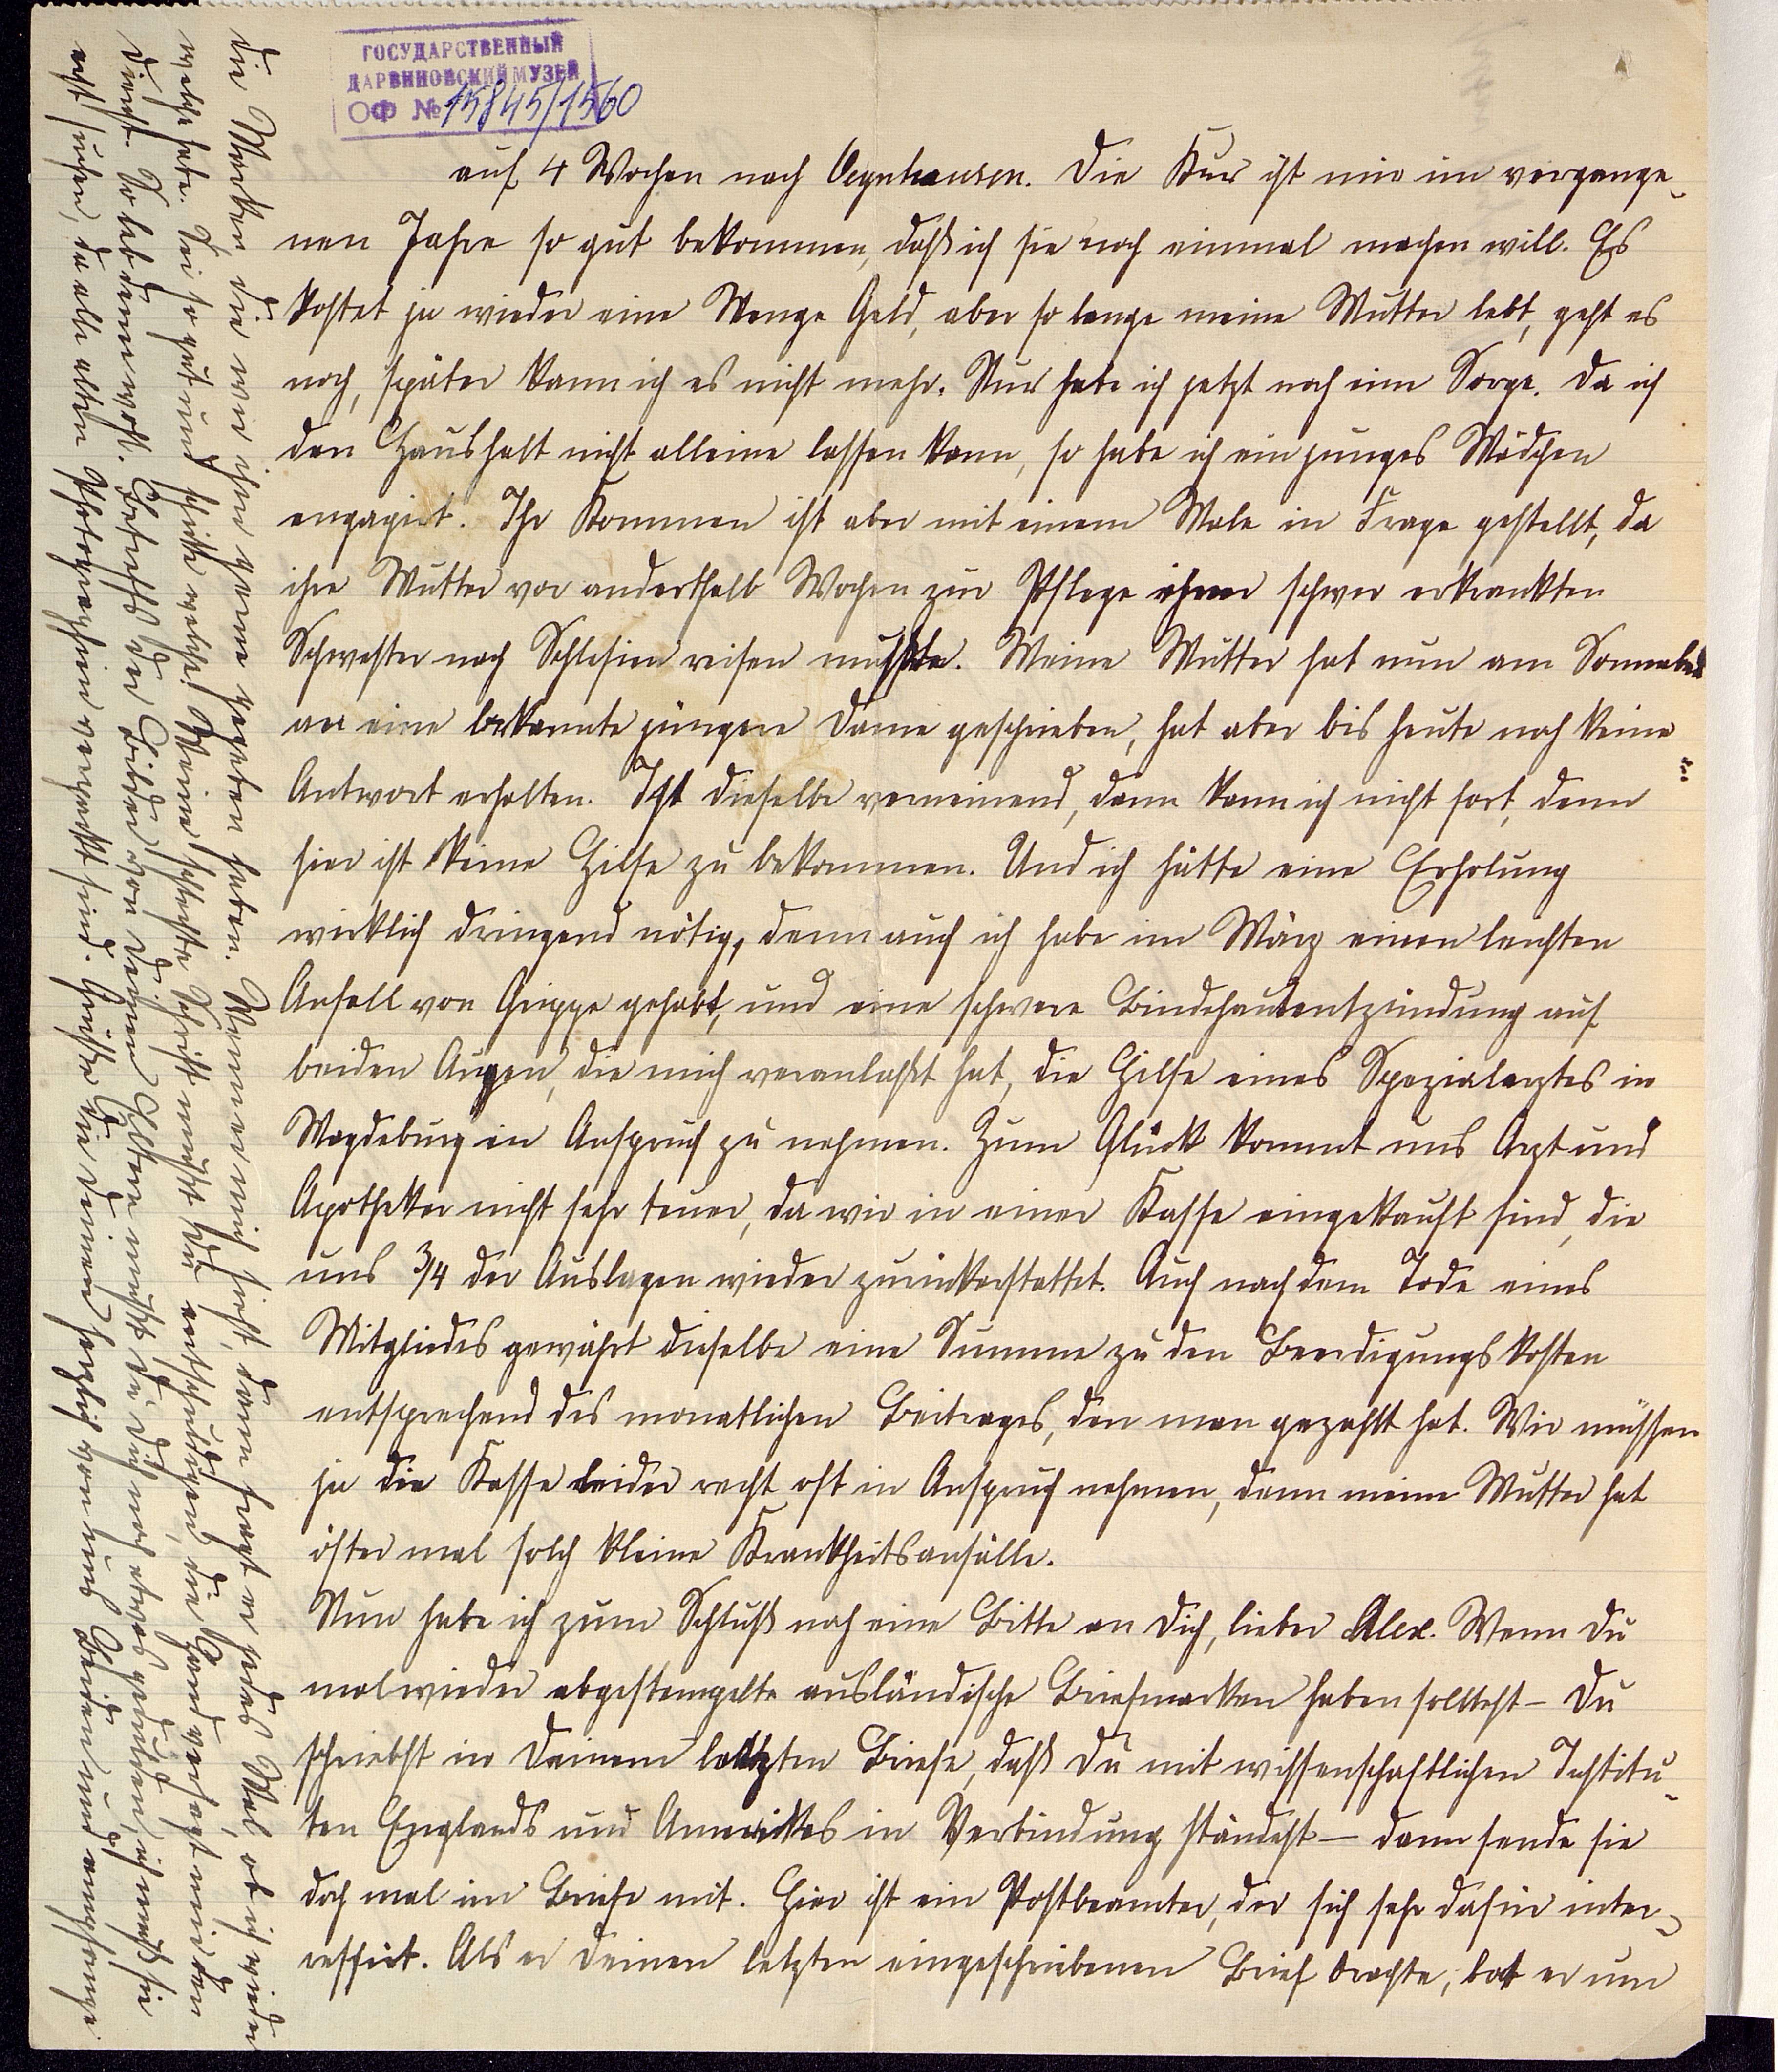 ГОСУДАРСТВЕННЫЙ
ДАРВИНОВСКИЙ МУЗЕЙ
ОФ № 15845/1560
auf 4 Wochen nach Oeynhausen. Die Kur ist mir im vergange-
nen Jahre so gut bekommen, daß ich sie noch einmal machen will. Es
kostet ja wieder eine Menge Geld, aber so lange meine Mutter lebt, geht es
noch, später kann ich es nicht mehr. Nur habe ich jetzt noch eine Sorge. Da ich
den Haushalt nicht alleine lassen kann, so habe ich ein junges Mädchen
engagirt. Ihr Kommen ist aber mit einem Male in Frage gestellt, da
ihre Mutter vor anderthalb Wochen zur Pflege ihrer schwer erkrankten
Schwester nach Schlesien reisen mußte. Meine Mutter hat nun am Sonnabend
an eine bekannte jüngere Dame geschrieben, hat aber bis heute noch keine
Antwort erhalten. Ist dieselbe verneinend, dann kann ich nicht fort, denn
hier ist keine Hilfe zu bekommen. Und ich hätte eine Erholung
wirklich dringend nötig, denn auch ich habe im März einen leichten
Anfall von Grippe gehabt, und eine schwere Bindehautentzündung auf
beiden Augen, die mich veranlaßt hat, die Hilfe eines Spezialarztes in
Magdeburg in Anspruch zu nehmen. Zum Glück kommt uns Arzt und
Apotheker nicht sehr teuer, da wir in einer Kasse eingekauft sind, die
uns 3/4 der Auslagen wieder zurückerstattet. Auch nach dem Tode eines
Mitgliedes gewährt dieselbe eine Summe zu den Beerdigungskosten
entsprechend des monatlichen Beitrages, den man gezahlt hat. Wir müssen
ja die Kasse leider recht oft in Anspruch nehmen, denn meine Mutter hat
öfter mal solch kleine Krankheitsanfälle.
Nun habe ich zum Schluß noch eine Bitte an Dich, lieber Alex. Wenn Du
mal wieder abgestempelte ausländische Briefmarken haben solltest – Du
schriebst in Deinem letzten Briefe, daß Du mit wissenschaftlichen Institu-
ten Englands und Amerikas in Verbindung ständest – dann sende sie
doch mal im Briefe mit. Hier ist ein Postbeamter, der sich sehr dafür inter-
ressirt. Als er Deinen letzten eingeschriebenen Brief brachte, bat er um
die Marken, die wir ihm gerne gegeben haben. Wenn er mich sieht, dann fragt er jedes Mal, ob ich wieder
welche habe. Sei so gut und schicke welche! Meine schlechte Schrift mußt Du entschuldigen, die Hand versagt mir den
Dienst. So leb denn wohl. Betreffs der Bilder von Deinen Eltern mußt Du Dich noch etwas gedulden, ich muß sie
erst suchen, da alle alten Photographien verpackt sind. Grüße die Deinen herzlich von uns Beiden und empfange